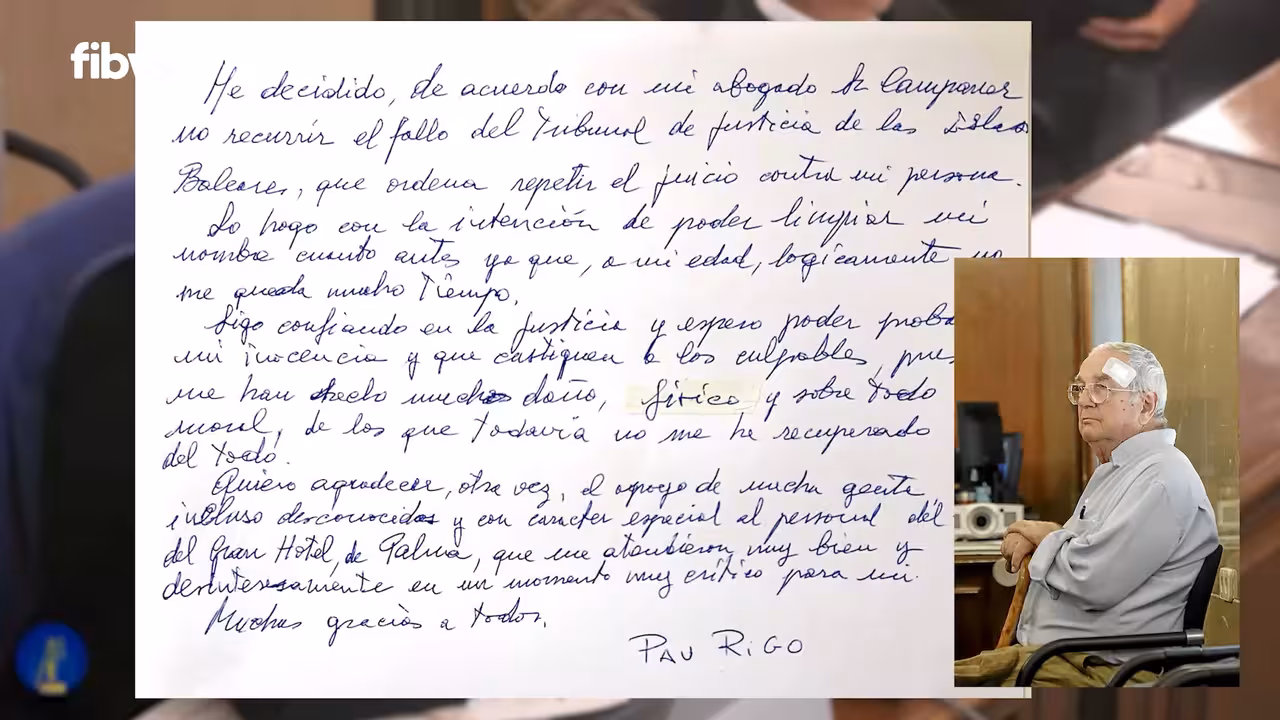 fibw
He decidido, de acuerdo con mi abogado Sr Campaner
no recurrir el fallo del Tribunal de Justicia de las Islas
Baleares, que ordena repetir el juicio contra mi persona.
Lo hago con la intención de poder limpiar mi
nombre cuanto antes ya que, a mi edad, logicamente no
me queda mucho Tiempo.
Sigo confiando en la Justicia y espero poder proba
mi inocencia y que castiguen a los culpables, pues
me han hecho mucho daño, físico y sobre todo
moral, de los que Todavia no me he recuperado
del Todo.
Quiero agradecer, otra vez, el apoyo de mucha gente,
incluso desconocidos y con caracter especial al personal del
del Gran Hotel, de Palma, que me atendieron muy bien y
desinteresamente en un momento muy crítico para mi.
Muchas gracias a todos.
PAU RIGO